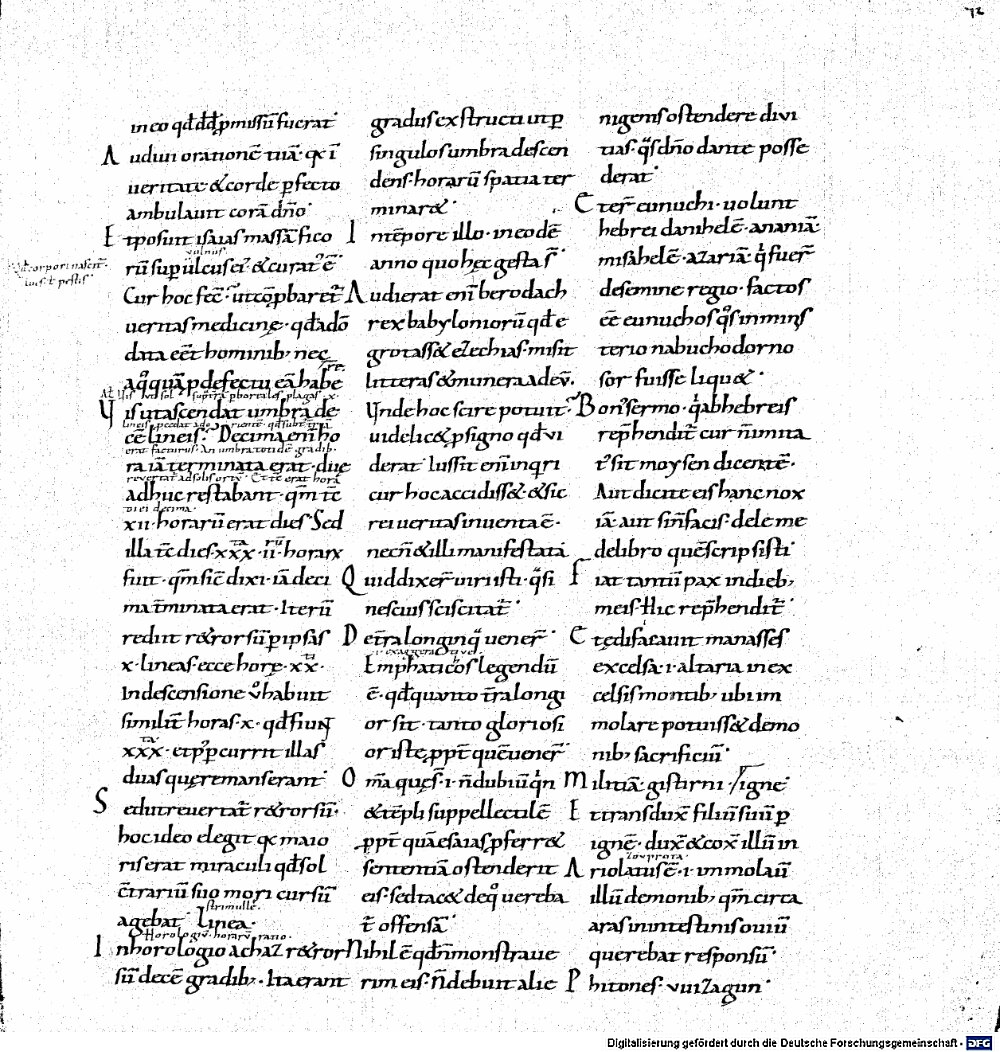 72
in eo qd̄ dd̄ p̱missū fuerat
Audiui orationē tuā· qꝛ ī
ueritate & corde ꝑfecto
ambulauit corā dn̄o·
Et posuit isaias massā fico
uolnus
rū suꝑ ulcus ei᷒· & curat᷒ ē·
Cur hoc fec̄· ut cōꝓbaret̄
ueritas medicinę· qd̄ a dō
data eēt hominib; nec
re
aq̊quā ꝓ defectu eā habe
Vis ut ascendat umbra de
cē lineis· Decima eni ho
ra iā terminata erat· duę
adhuc restabant· qm̄ tc̄
diei decima·
xii· horarū erat dies· Sed
illa tc̄ dies· xxx· ii· horarꝝ
fuit· qm̄ sic̄ dixi· iā deci
ma t̄minata erat· Iterū
rediit retrorsū ꝑ ipsas
x· lineas· ecce horę· xx·
In descensione ů habuit
similit̄ horas· x· qd̄ fiunt
xxx· et p̱ꝑ currit illas
duas quę remanserant·
Sed ut reuertat̄ retrorsū·
hoc ideo elegit qꝛ maio
ris erat miraculi qd̄ sol
c̄trariū suo mori cursū
agebat· Linea·
Horologiū· horarū ratio·
In horologio achaz retror
sū decē gradib;· Ita erant
gradus exstructi ut ꝑ
singulos umbra descen
dens· horarū spatia ter
minaret·
In tēpore illo· in eodē
anno quo hęc gesta s̄·
Audierat eni berodach
rex babyloniorū qd̄ e
grotasset ezechias· misit
litteras & munera ad eū·
Unde hoc scire potuit·
uidelicet ꝑ signo qd̄ ui
derat· Iussit eni inqri
cur hoc accidisset· & sic
rei ueritas inuenta ē·
necn̄ & illi manifestata
Quid dixer̄ uiri isti· q̄si
nescius sciscitat̄·
De t̄ra longinq̄ uener̄·
Emphaticōs legendū
ē· qd̄ quanto t̄ra longi
or sit· tanto gloriosi
or iste· ꝓpt̄ quē uener̄·
Om̄a quę s̄· i· n̄ dubiū q̄n
& tēpli suppellectilē
ꝓpt̄ quā esaias ꝓferret
sententiā ostenderit
eis· sed tacet de q̊ uereba
t̄ offensā·
Nihil ē qd̄ n̄ monstraue
rim eis· n̄ debuit alie
nigenis ostendere diui
tias· q̄s dn̄o dante posse
derat·
Cter̄ eunuchi· uolunt
hebrei danihelē· ananiā
misahelē· azariā· q̇ fuer̄
de semine regio· factos
eē eunuchos q̊s in minis
terio nabuchodorno
sor fuisse liquet·
Bon᷒ sermo· q̇ ab hebreis
rep̄hendit̄ cur n̄ imita
t᷒ sit moysen dicentē·
Aut dicite eis hanc nox
iā· aut si n̄ facis· dele me
de libro quē scripsisti·
Fiat tantū pax in dieb;
meis· Hic rep̄hendit̄·
excelsa· i· altaria in ex
celsis montib; ubi im
molare potuisset demo
nib; sacrificiū·
igne·
Et transduxit filiū suū ꝑ
ignē· duxit & coxit illū in
Ariolatus ē· i· immolauit
illū demonib; qm̄ circa
aras in intestinis ouiū
querebat responsū·
Phitones·
Digitalisierung gefördert durch die Deutsche Forschungsgemeinschaft - DFG